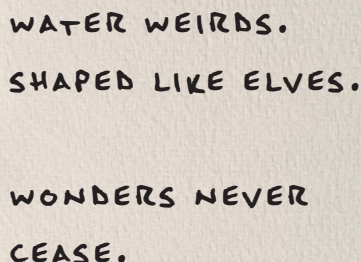 WATER WEIRDS.
SHAPED LIKE ELVES.
WONDERS NEVER
CEASE.